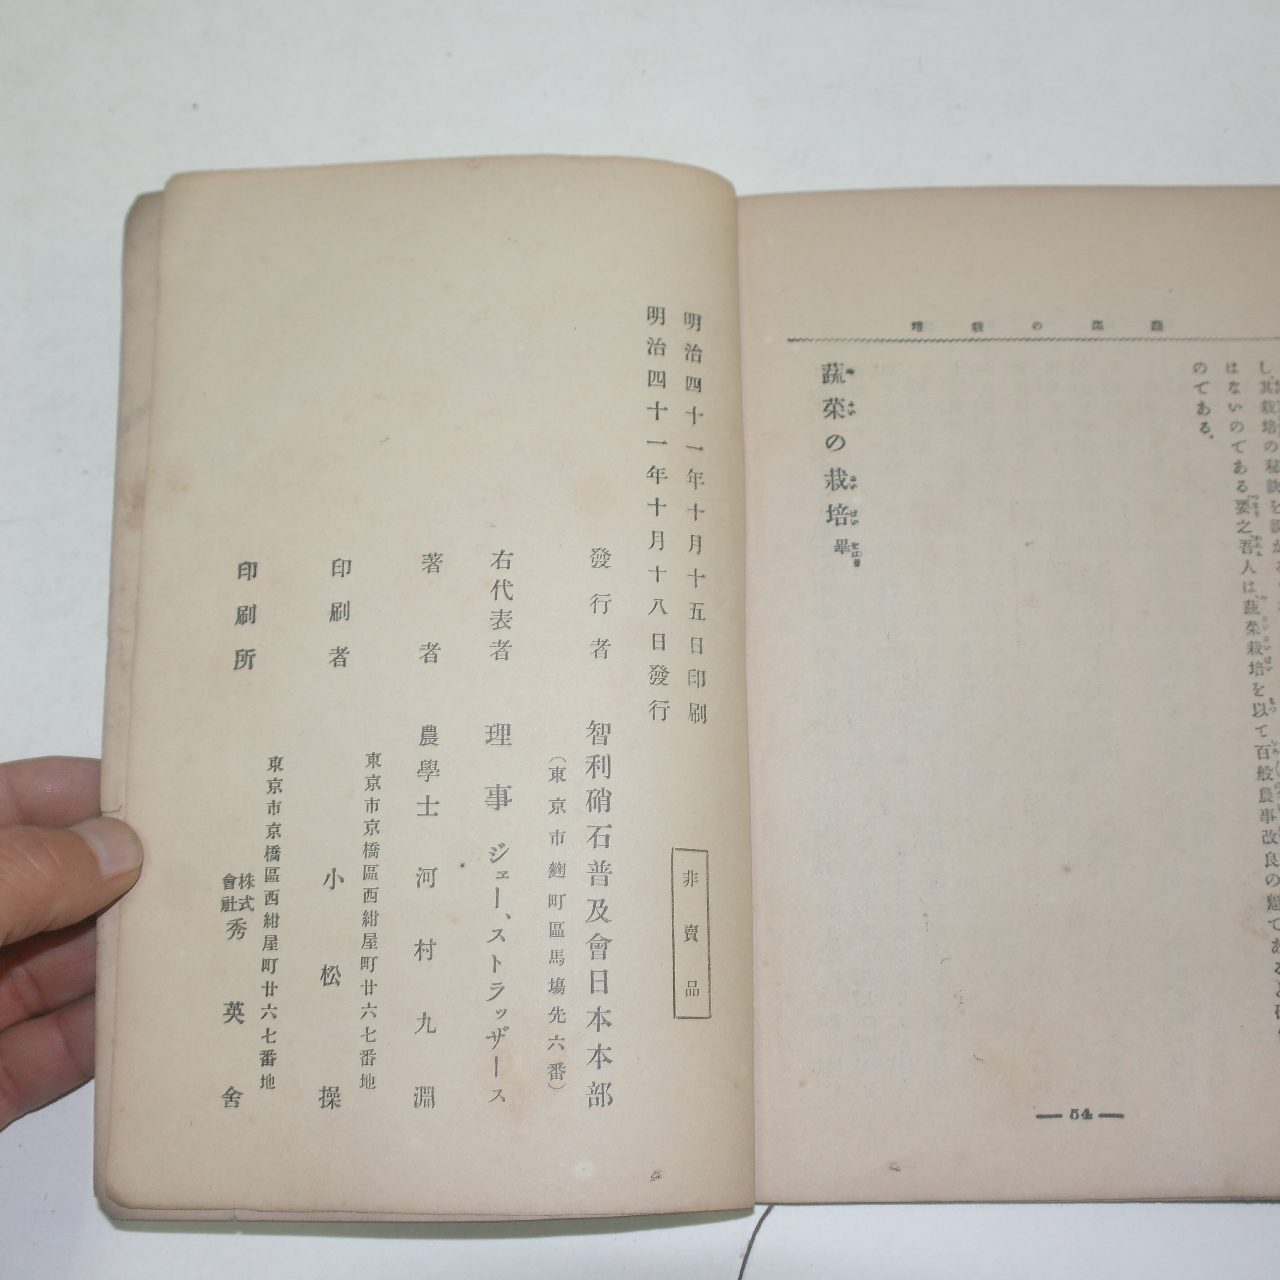 蔬菜の栽培
し、其栽培の秘訣を説
はないのである要之吾人は、蔬菜栽培を以て百般農事改良の魁である
のである。
蔬菜の栽培畢
— 54 —
明治四十一年十月十五日印刷
明治四十一年十月十八日發行
非賣品
發行者 智利硝石普及會日本本部
（東京市麹町區馬塲先六番）
右代表者 理事 ジェー、ストラッザース
著者 農學士 河村九淵
東京市京橋區西紺屋町廿六七番地
印刷者 小松操
東京市京橋區西紺屋町廿六七番地
印刷所 株式會社 秀英舍